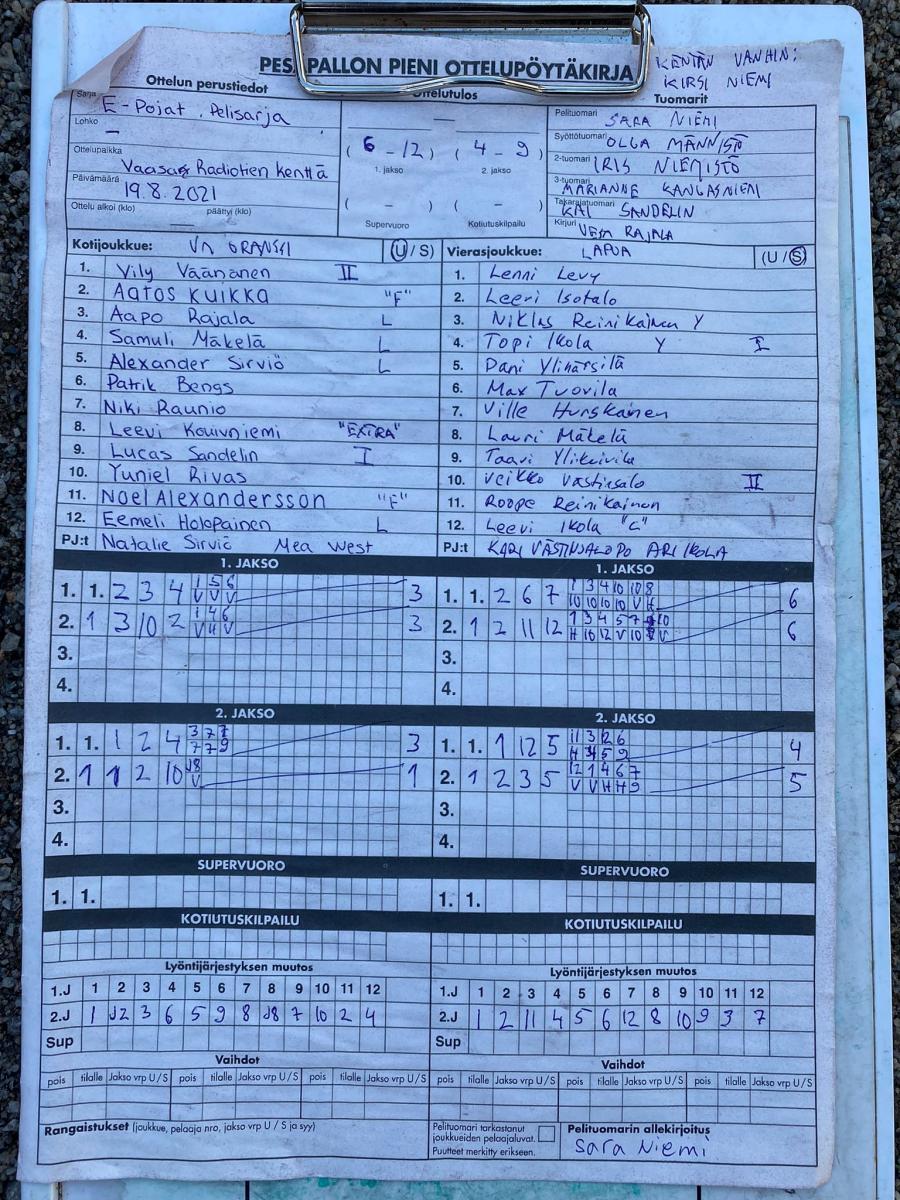 PESÄPALLON PIENI OTTELUPÖYTÄKIRJA
KENTÄN VANHIN:
KIRSI NIEMI
Ottelun perustiedot
Ottelutulos
Tuomarit
Sarja E-Pojat, Pelisarja
Lohko –
Ottelupaikka Vaasa Radiotien kenttä
Päivämäärä 19.8.2021
Ottelu alkoi (klo) — päättyi (klo)
—
( 6 – 12 ) ( 4 – 9 )
1. jakso 2. jakso
( – ) ( – )
Supervuoro Kotiutuskilpailu
Pelituomari SARA NIEMI
Syöttötuomari OLGA MÄNNISTÖ
2-tuomari IRIS NIEMISTÖ
3-tuomari MARIANNE KANGASNIEMI
Takarajatuomari KAI SANDELIN
Kirjuri VESA RAJALA
Kotijoukkue: VM ORANSSI (U / S)
1. Vily Väänänen II
2. Aatos Kuikka "F"
3. Aapo Rajala L
4. Samuli Mäkelä L
5. Alexander Sirviö L
6. Patrik Bengs
7. Niki Raunio
8. Leevi Kouivniemi "EXTRA"
9. Lucas Sandelin I
10. Yuniel Rivas
11. Noel Alexandersson "F"
12. Eemeli Holopainen L
PJ:t Natalie Sirviö Mea West
Vierasjoukkue: LAPUA (U / S)
1. Lenni Levy
2. Leevi Isotalo
3. Niklas Reinikainen Y
4. Topi Ikola Y I
5. Dani Ylihärsilä
6. Max Tuovila
7. Ville Hurskainen
8. Lauri Mäkelä
9. Taavi
10. Veikko Västinsalo II
11. Roope Reinikainen
12. Leevi Ikola "C"
PJ:t KARI ARI IKOLA
1. JAKSO
1. 1. 2 3 4 1 5 6 3
V V V
2. 1 3 10 2 1 4 6 3
V H V
3.
4.
1. JAKSO
1. 1. 2 6 7 1 3 4 10 10 8 6
10 10 10 10 V H
2. 1 2 11 12 1 3 4 5 7 10 6
H 10 12 V 10 V
3.
4.
2. JAKSO
1. 1. 1 2 4 3 7 7 3
7 7 9
2. 1 1 2 10 J8 1
V
3.
4.
2. JAKSO
1. 1. 1 12 5 11 3 2 6 4
H 5 9
2. 1 2 3 5 12 1 4 6 7 5
V V H H 9
3.
4.
SUPERVUORO
1. 1.
SUPERVUORO
1. 1.
KOTIUTUSKILPAILU
KOTIUTUSKILPAILU
Lyöntijärjestyksen muutos
1.J 1 2 3 4 5 6 7 8 9 10 11 12
2.J 1 J2 3 6 5 9 8 J8 7 10 2 4
Sup
Lyöntijärjestyksen muutos
1.J 1 2 3 4 5 6 7 8 9 10 11 12
2.J 1 2 11 4 5 6 12 8 10 9 3 7
Sup
Vaihdot
pois tilalle Jakso vrp U / S pois tilalle Jakso vrp U / S pois tilalle Jakso vrp U / S
Vaihdot
pois tilalle Jakso vrp U / S pois tilalle Jakso vrp U / S pois tilalle Jakso vrp U / S
Rangaistukset (joukkue, pelaaja nro, jakso vrp U / S ja syy)
Pelituomari tarkastanut
joukkueiden pelaajaluvat.
Puutteet merkitty erikseen.
Pelituomarin allekirjoitus
Sara Niemi